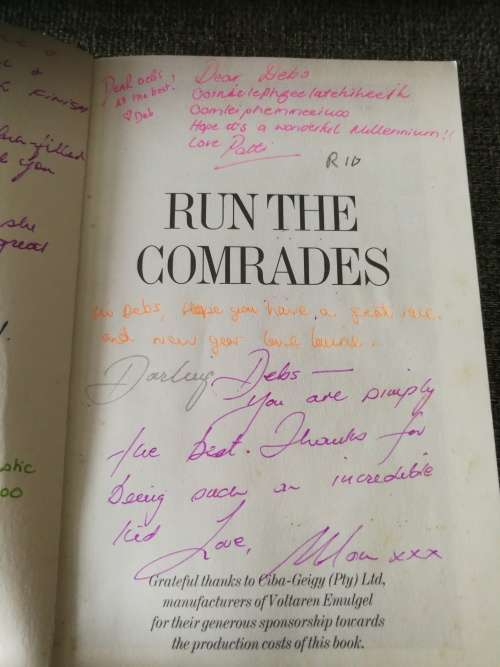 Dear Debs,
All the best.
♡ Deb
Dear Debs
Hope it's a wonderful Millennium!!
Love Patti
R10
RUN THE
COMRADES
to Debs, Hope you have a great race
and new year love
Darling Debs —
You are simply
the best. Thanks for
being such an incredible
kid
Love, Mom xxx
Grateful thanks to Ciba-Geigy (Pty) Ltd,
manufacturers of Voltaren Emulgel
for their generous sponsorship towards
the production costs of this book.
FINISH
filled
you
she
great